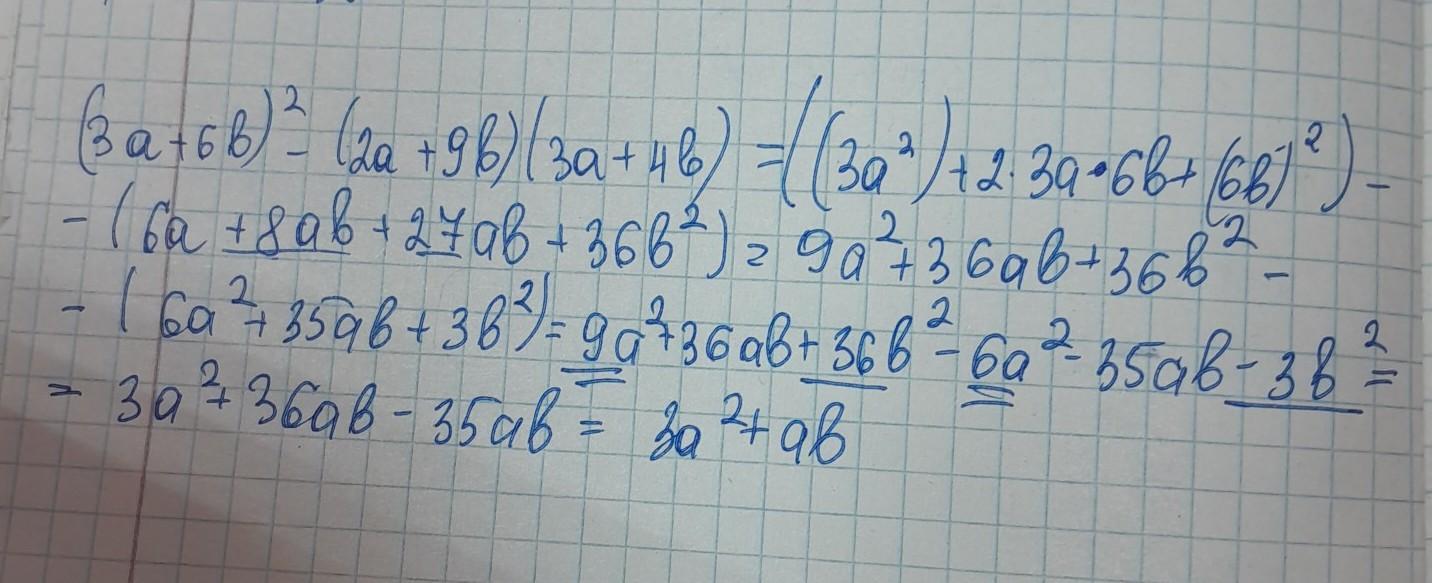 (3a+6b)² - (2a+9b)(3a+4b) = ((3a²)+2·3a·6b+(6b)²) -
- (6a+8ab+27ab+36b²) = 9a²+36ab+36b² -
- (6a²+35ab+3b²) = 9a²+36ab+36b²-6a²-35ab-3b² =
= 3a²+36ab-35ab = 3a²+ab